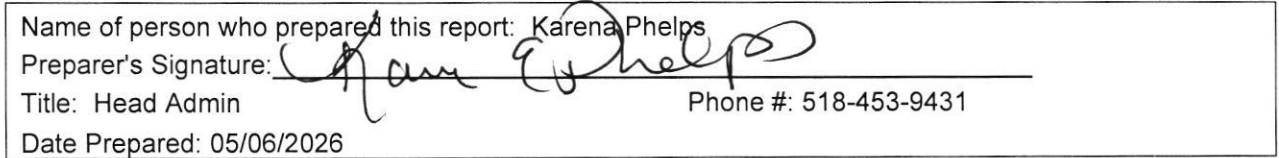 Name of person who prepared this report: Karena Phelps
Preparer's Signature: Karen E Phelps
Title: Head Admin Phone #: 518-453-9431
Date Prepared: 05/06/2026